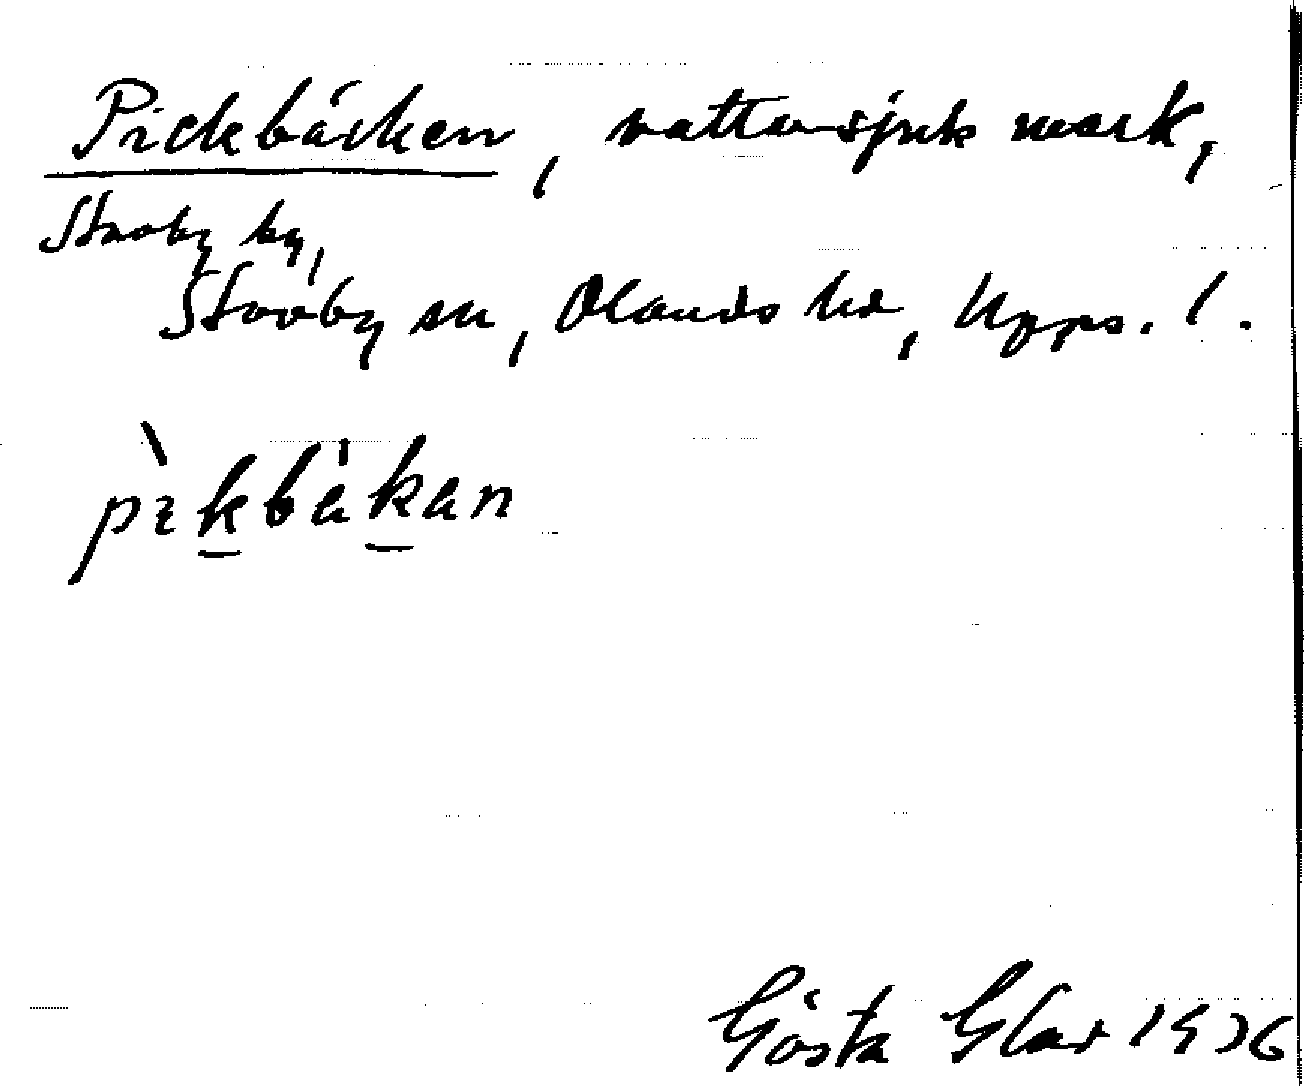 Pickbäcken, vattensjuk mark,
Stavby by,
Stavby sn, Olands hd, Upps. l.
pìkbäkan
Gösta Glas 1936